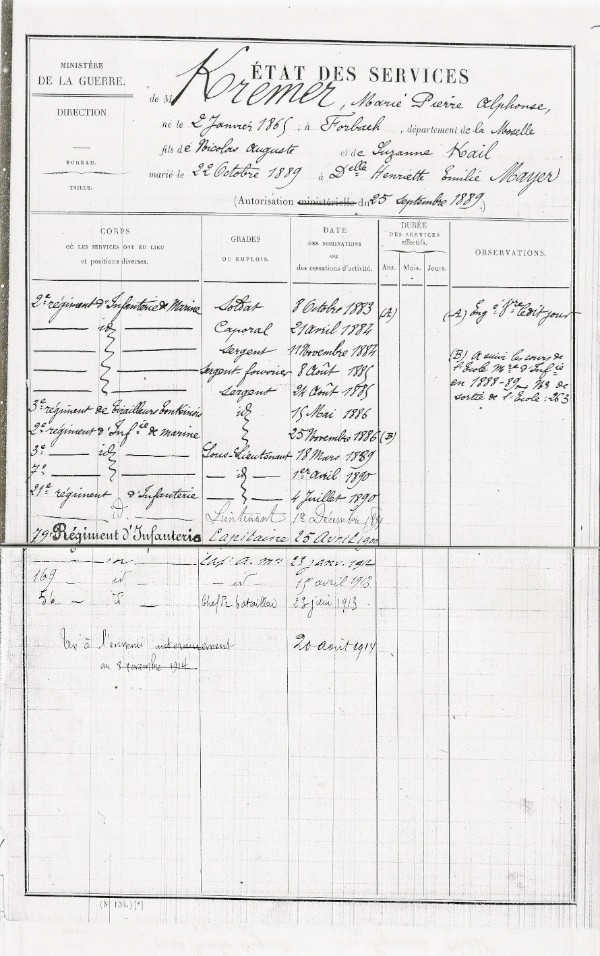 MINISTÈRE
DE LA GUERRE.
DIRECTION
BUREAU.
TAILLE.
ÉTAT DES SERVICES
de M Kremer, Marie Pierre Alphonse,
né le 2 Janvier 1865, à Forbach, département de la Moselle
fils de Nicolas Auguste et de Suzanne Kail
marié le 22 Octobre 1889 à Delle Henriette Emilie Mayer
(Autorisation ministérielle du 25 Septembre 1889.)
CORPS
OÙ LES SERVICES ONT EU LIEU
et positions diverses.
GRADES
OU EMPLOIS.
DATE
DES NOMINATIONS
OU
des cessations d'activité.
DURÉE
DES SERVICES
effectifs.
Ans. Mois. Jours.
OBSERVATIONS.
2e régiment d'Infanterie de Marine Soldat 8 Octobre 1883 (A) (A) Engé ledit jour
— id — Caporal 21 avril 1884
Sergent 11 Novembre 1884 (B) A suivi les cours de
l'Ecole Mre d'Infie
Sergent fourrier 8 Août 1885 en 1888-89, No de
Sergent 24 Août 1885 sortie de l'Ecole: 253
3e régiment de tirailleurs tonkinois id 15 Mai 1886
2e régiment d'Infie de marine 25 Novembre 1886 (B)
3e — id — Sous-Lieutenant 18 Mars 1889
7e — id — 1er Avril 1890
21e régiment d'Infanterie — 4 Juillet 1890
— id — Lieutenant 1er Décembre
79e Régiment d'Infanterie Capitaine 25 Avril 1900
23 janv. 1912
169 — id — — id — 15 avril 1913
56 — id — Chef de bataillon 23 juin 1913
Tué à l'ennemi antérieurement 20 août 1914
au 8 novembre 1914